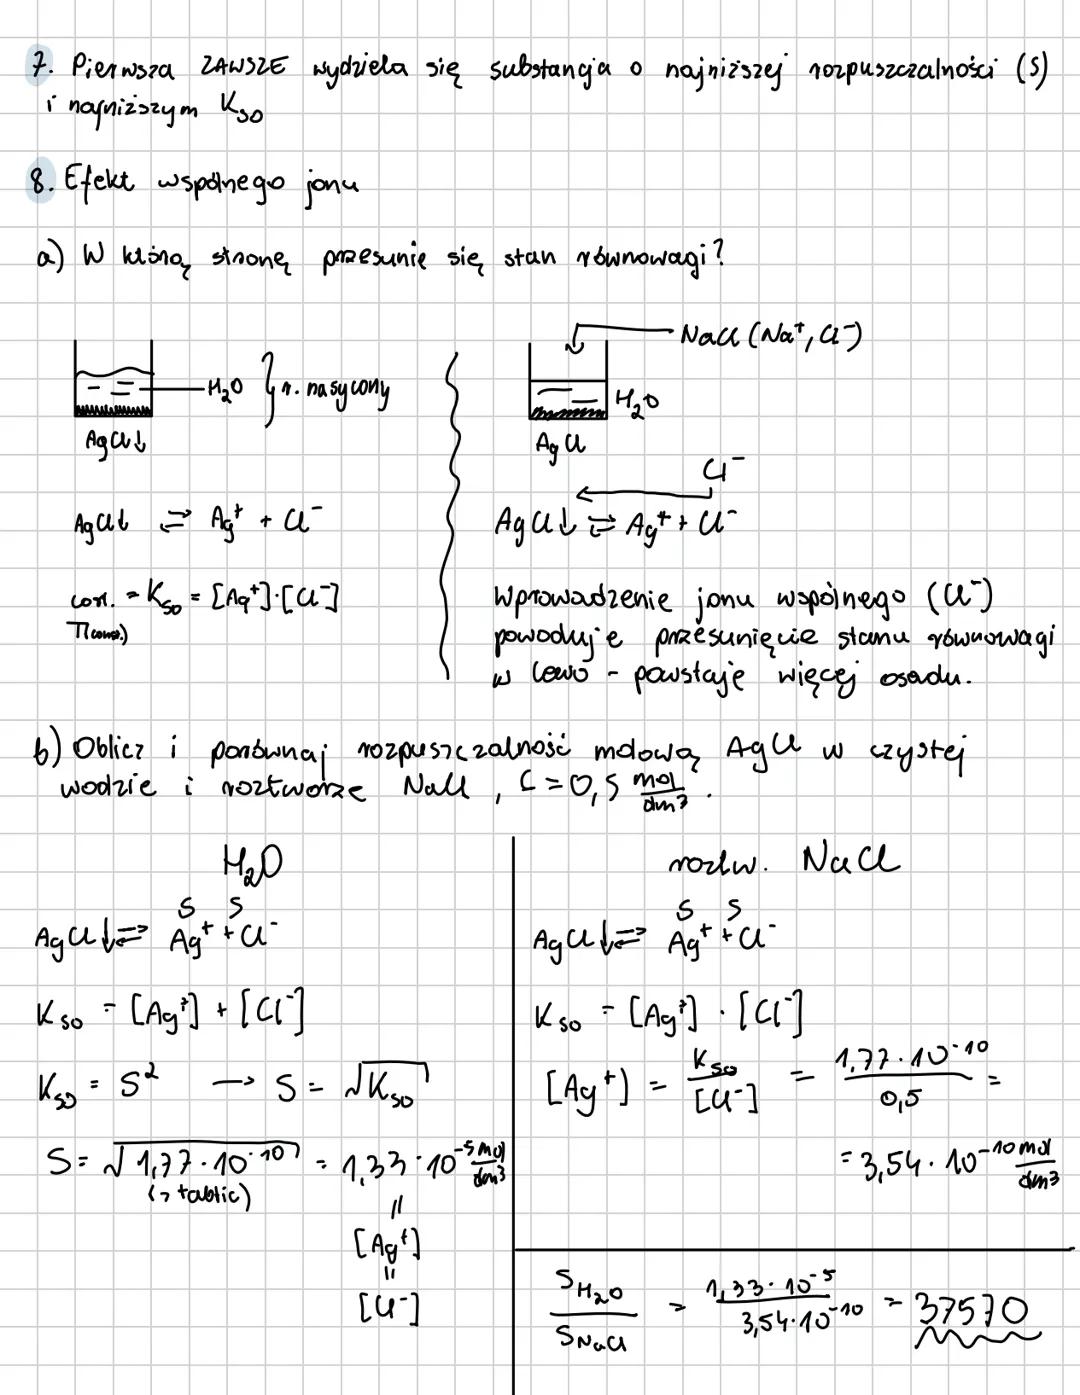 7. Pierwsza ZAWSZE wydziela się substancja o najniższej rozpuszczalności (S)
i najniższym Kso
8. Efekt wspólnego jonu
a) W którą stronę przesunie się stan równowagi?
NaCl (Na⁺, Cl⁻)
H₂O } r. nasycony
H₂O
AgCl↓
AgCl
Cl⁻
AgCl↓ ⇌ Ag⁺ + Cl⁻
AgCl↓ ⇌ Ag⁺ + Cl⁻
const. = Kso = [Ag⁺]·[Cl⁻]
T(const.)
Wprowadzenie jonu wspólnego (Cl⁻)
powoduje przesunięcie stanu równowagi
w lewo - powstaje więcej osadu.
b) Oblicz i porównaj rozpuszczalność molową AgCl w czystej
wodzie i roztworze NaCl, C = 0,5 mol/dm³.
H₂O
S S
AgCl↓ ⇌ Ag⁺ + Cl⁻
Kso = [Ag⁺] + [Cl⁻]
Kso = S² → S = √Kso
S = √1,77·10⁻¹⁰ = 1,33·10⁻⁵ mol/dm³
(z tablic)
=
[Ag⁺]
=
[Cl⁻]
roztw. NaCl
S S
AgCl↓ ⇌ Ag⁺ + Cl⁻
Kso = [Ag⁺] · [Cl⁻]
[Ag⁺] = Kso/[Cl⁻] = 1,77·10⁻¹⁰/0,5 =
= 3,54·10⁻¹⁰ mol/dm³
S H₂O/S NaCl = 1,33·10⁻⁵/3,54·10⁻¹⁰ = 37570